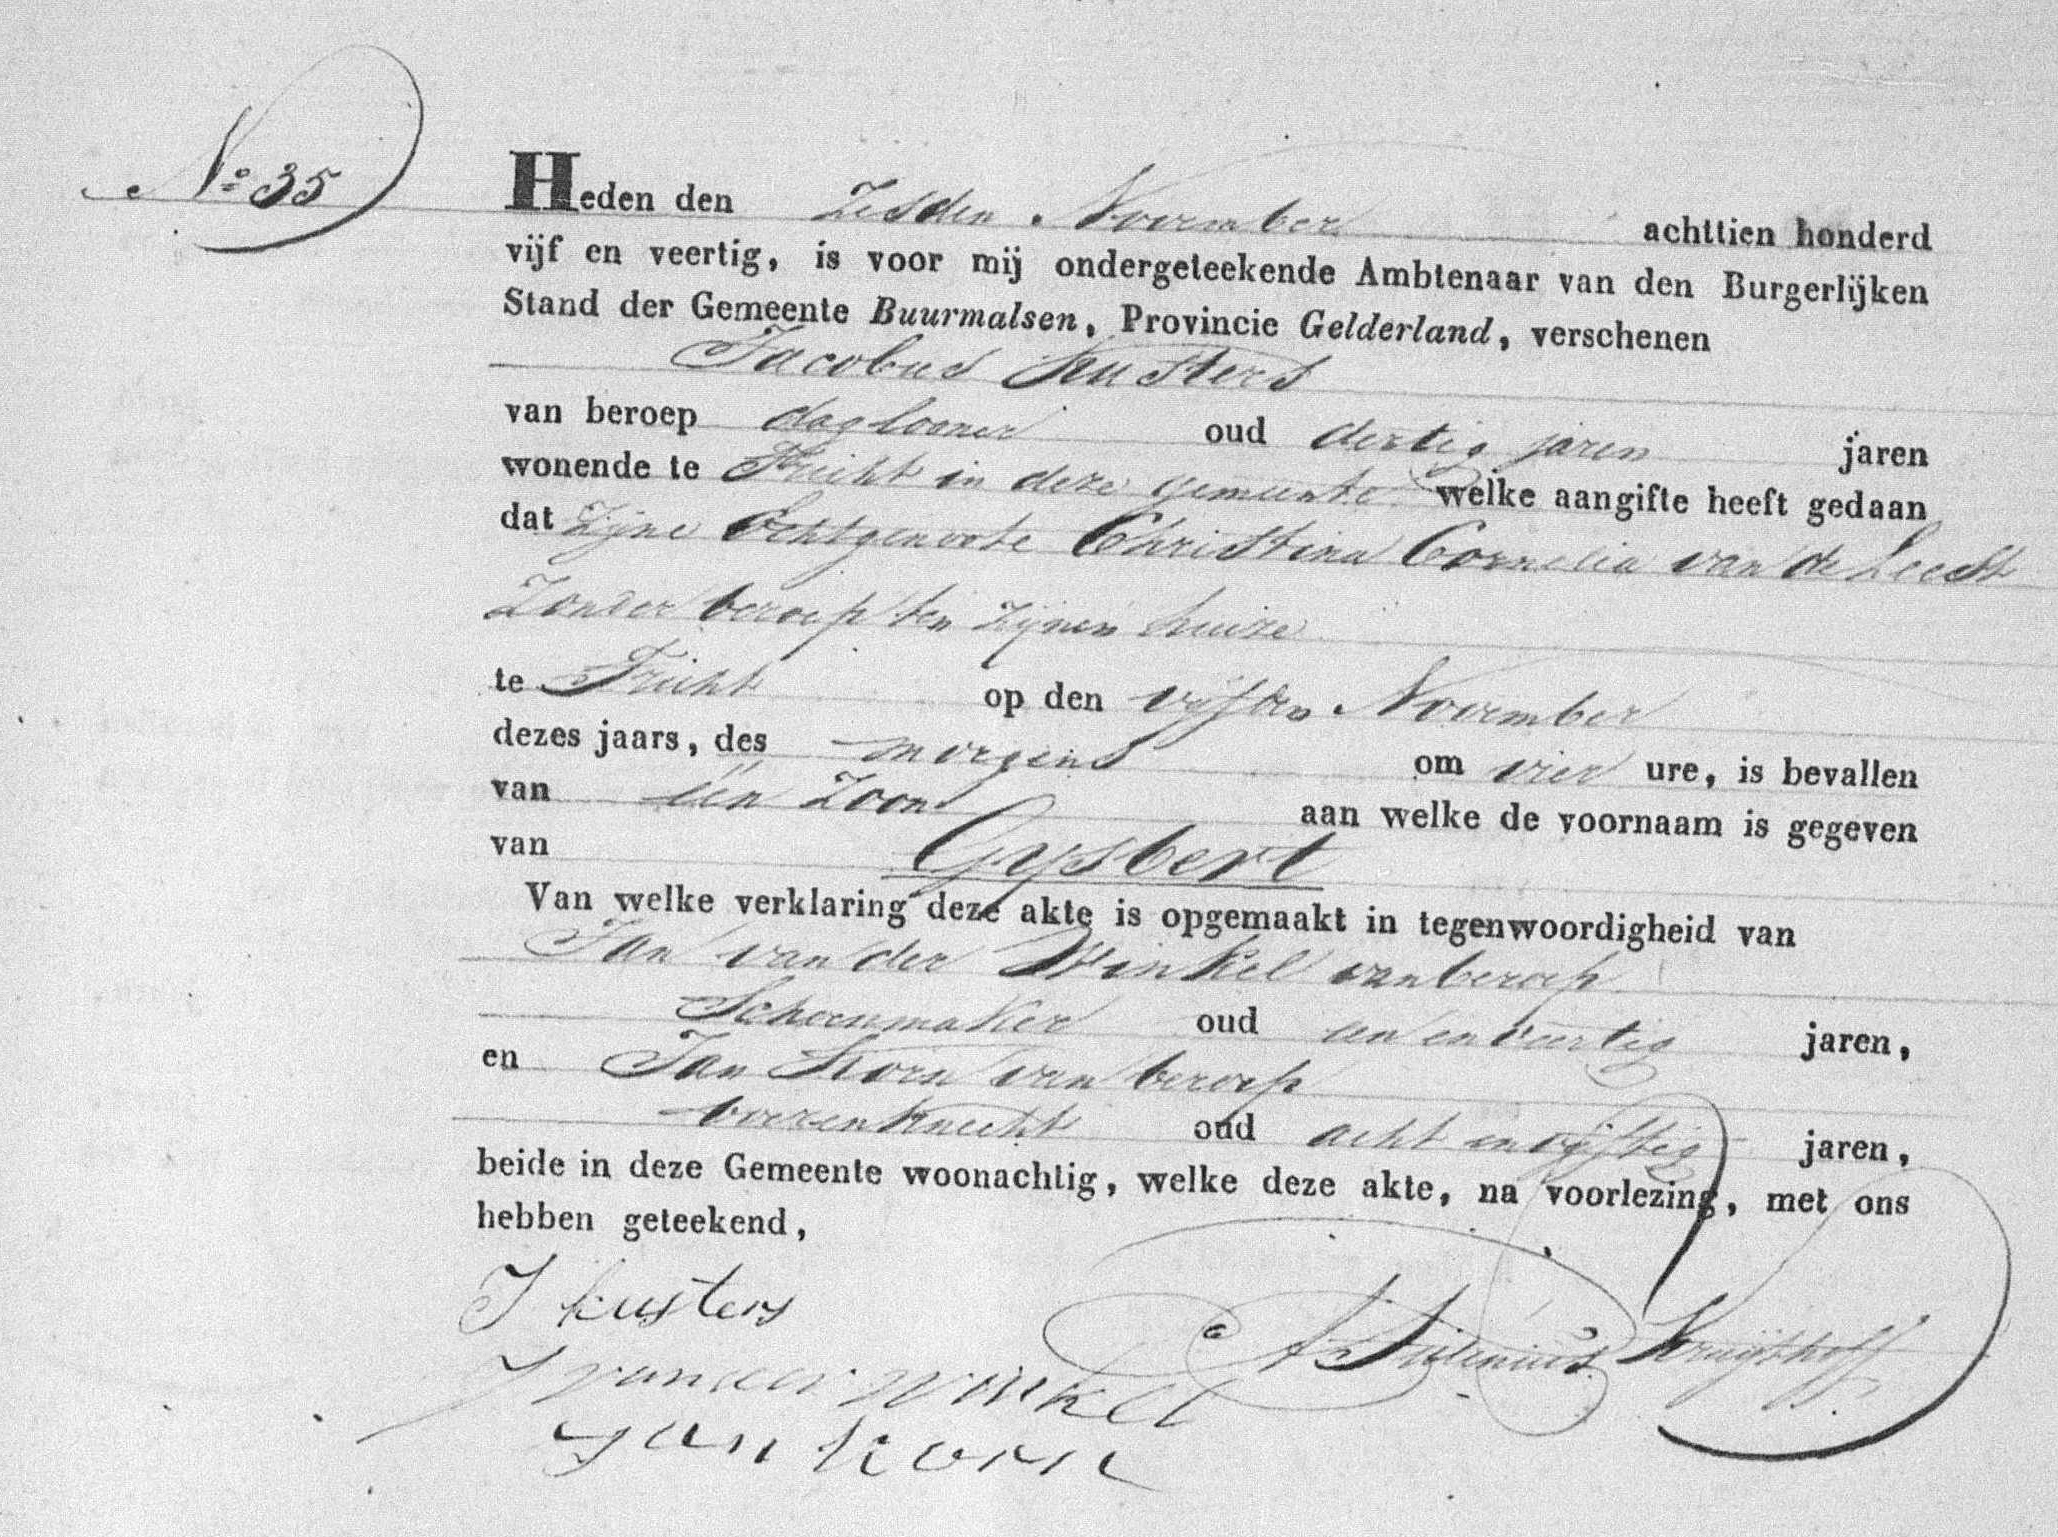 No 35
Heden den Zesden November achttien honderd
vijf en veertig, is voor mij ondergeteekende Ambtenaar van den Burgerlijken
Stand der Gemeente Buurmalsen, Provincie Gelderland, verschenen
Jacobus Kusters
van beroep daglooner oud dertig jaren jaren
wonende te Tricht in deze gemeente welke aangifte heeft gedaan
dat Zijne Echtgenoote Christina Cornelia van de Leest
Zonder beroep ten Zijnen huize
te Tricht op den vijfden November
dezes jaars, des morgens om vier ure, is bevallen
van één Zoon aan welke de voornaam is gegeven
van Gysbert
Van welke verklaring deze akte is opgemaakt in tegenwoordigheid van
Jan van der Winkel van beroep
Schoenmaker oud een en veertig jaren,
en Jan Korn van beroep
boerenknecht oud acht en vijftig jaren,
beide in deze Gemeente woonachtig, welke deze akte, na voorlezing, met ons
hebben geteekend,
J kusters
J van der winkel
Jan Korn
Kruijthoff